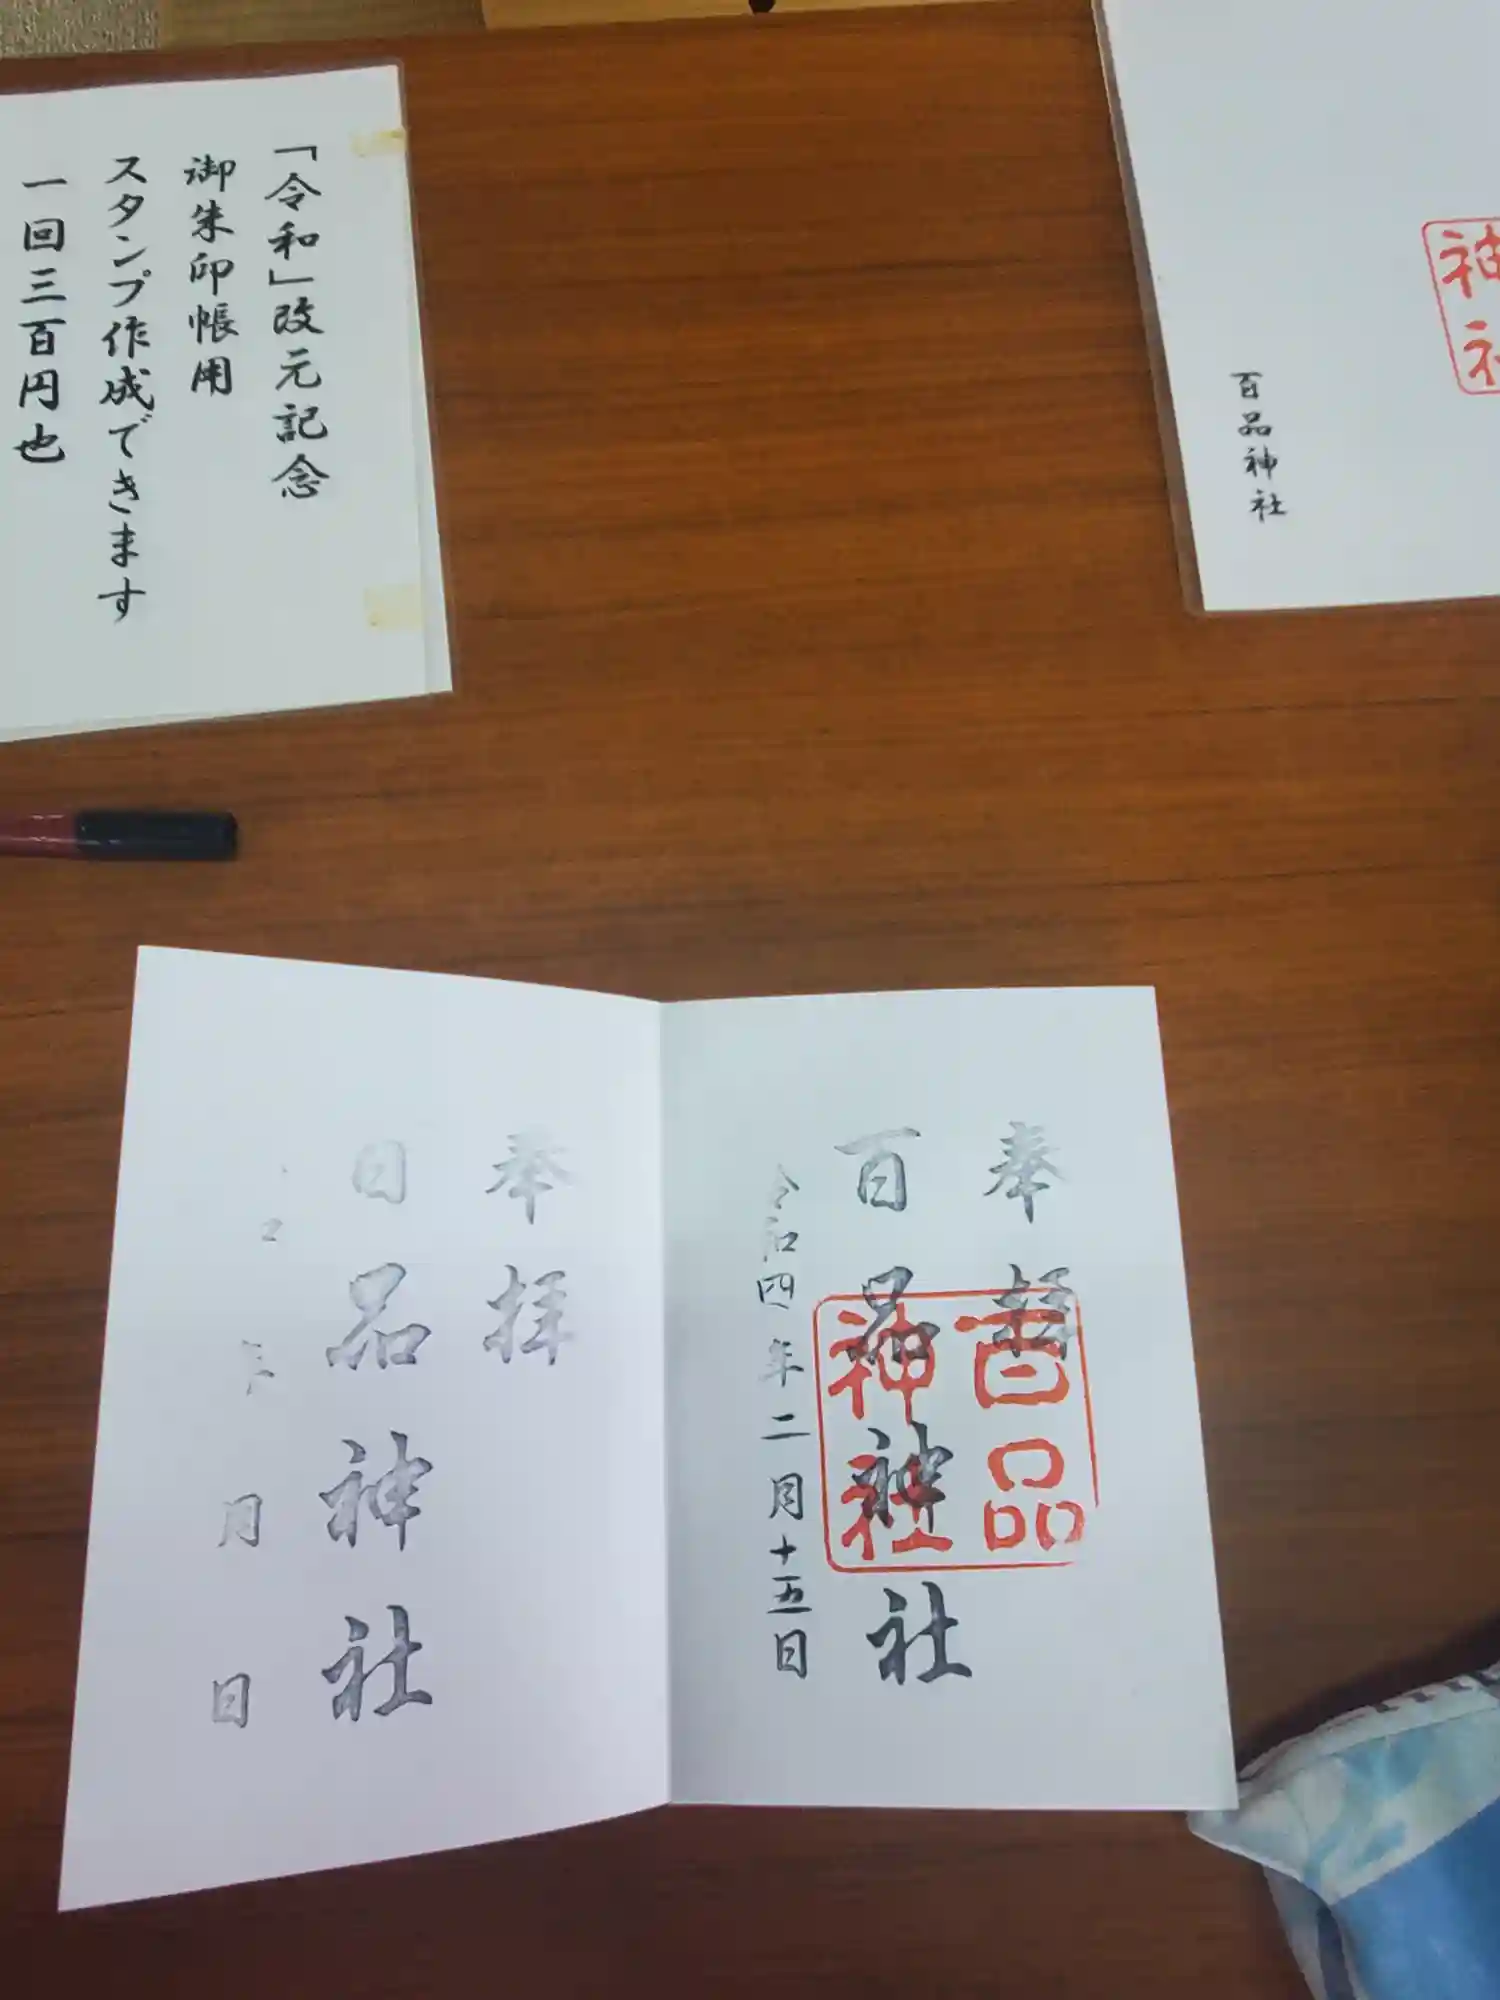 「令和」改元記念
御朱印帳用
スタンプ作成できます
一回三百円也
神
百品神社
奉拝
百品神社
令和四年二月十五日
百品
神社
奉拝
品神社
年 月 日